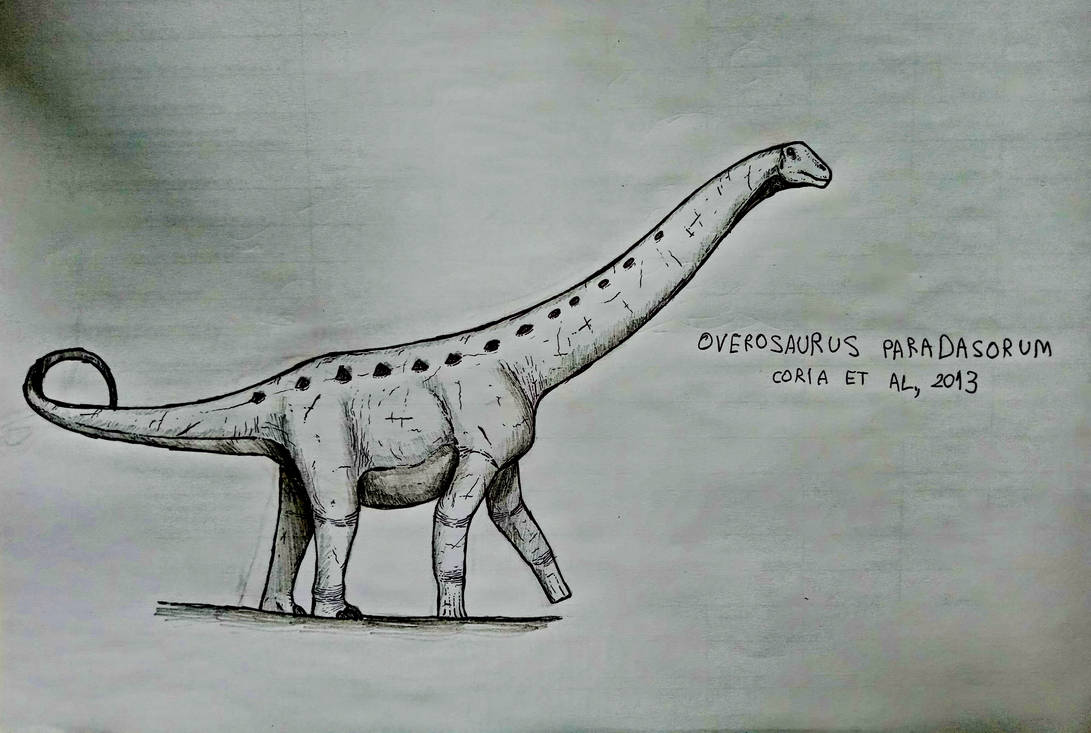 OVEROSAURUS PARADASORUM
CORIA ET AL, 2013